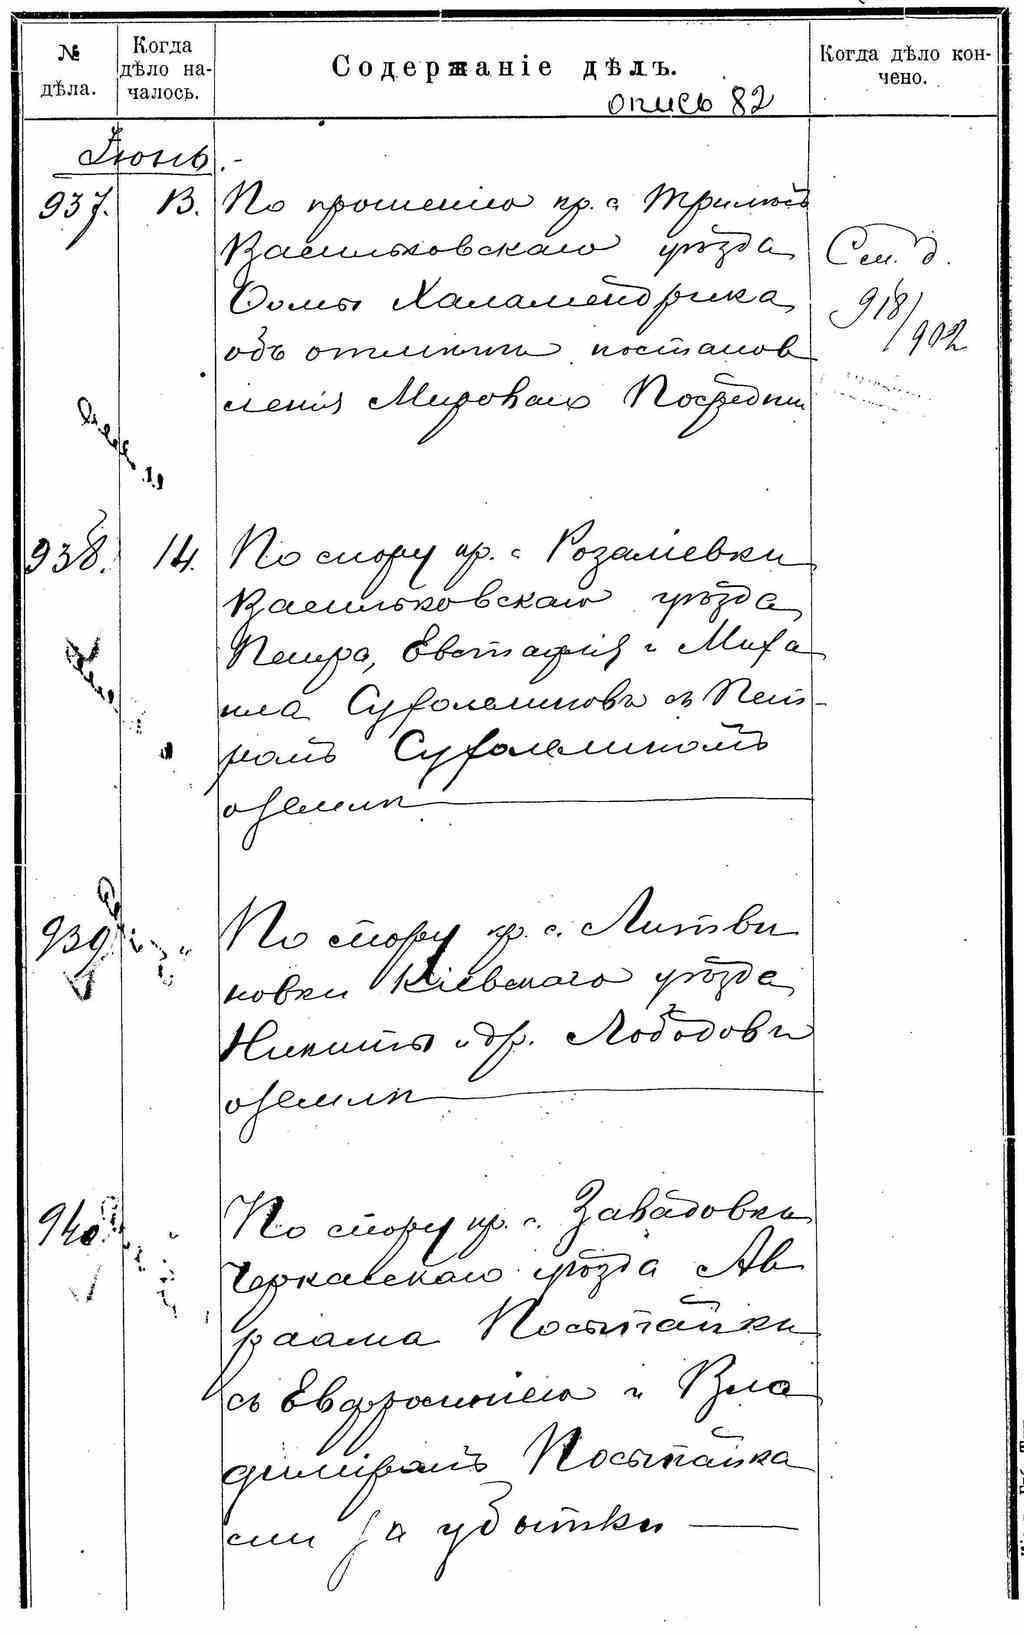 № дѣла.
Когда дѣло на-
чалось.
Содержаніе дѣлъ.
Когда дѣло кон-
чено.
опись 82
Іюнь.
937. 13. По прошенію кр. с
Васильковскаго уѣзда
Ѳомы Халамендрика
объ отмѣнѣ постанов
ленія Мировыхъ Посредни
См. д.
918/902
938. 14. По спору кр. с Розаліевки
Васильковскаго уѣзда
Петра, Евстафія и Миха
ила Суходемиковъ съ Пет-
ромъ Суходемикомъ
о землѣ
939. " По спору кр. с. Литви
новки Кіевскаго уѣзда
Никиты и др. Лободовъ
о землѣ
940. " По спору кр. с. Завадовки
Черкасскаго уѣзда Ав
раама Постыпайки
съ Евфросиніею и Вла
диміромъ Постыпайка
ми за убытки